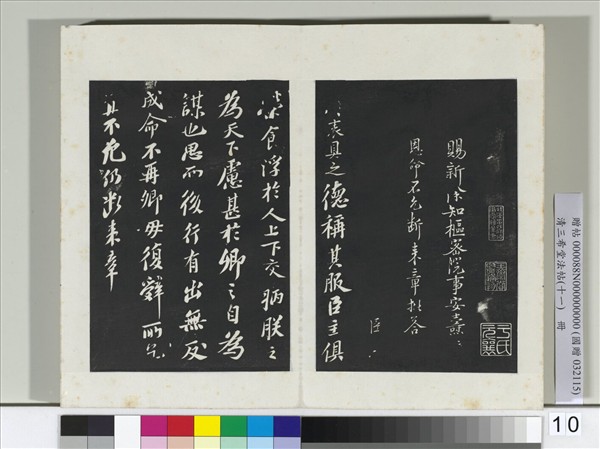 賜新除知樞密院事安燾乞
恩命不允斷來章批答
臣
省表具之德稱其服臣主俱
榮食浮於人上下交病朕之
為天下慮甚於卿之自為
謀也思而後行有出無反
成命不再卿毋復辭所乞
宜不允仍斷來章
贈帖 000088N000000000 (國贈 032115)
清三希堂法帖(十一) 冊
10